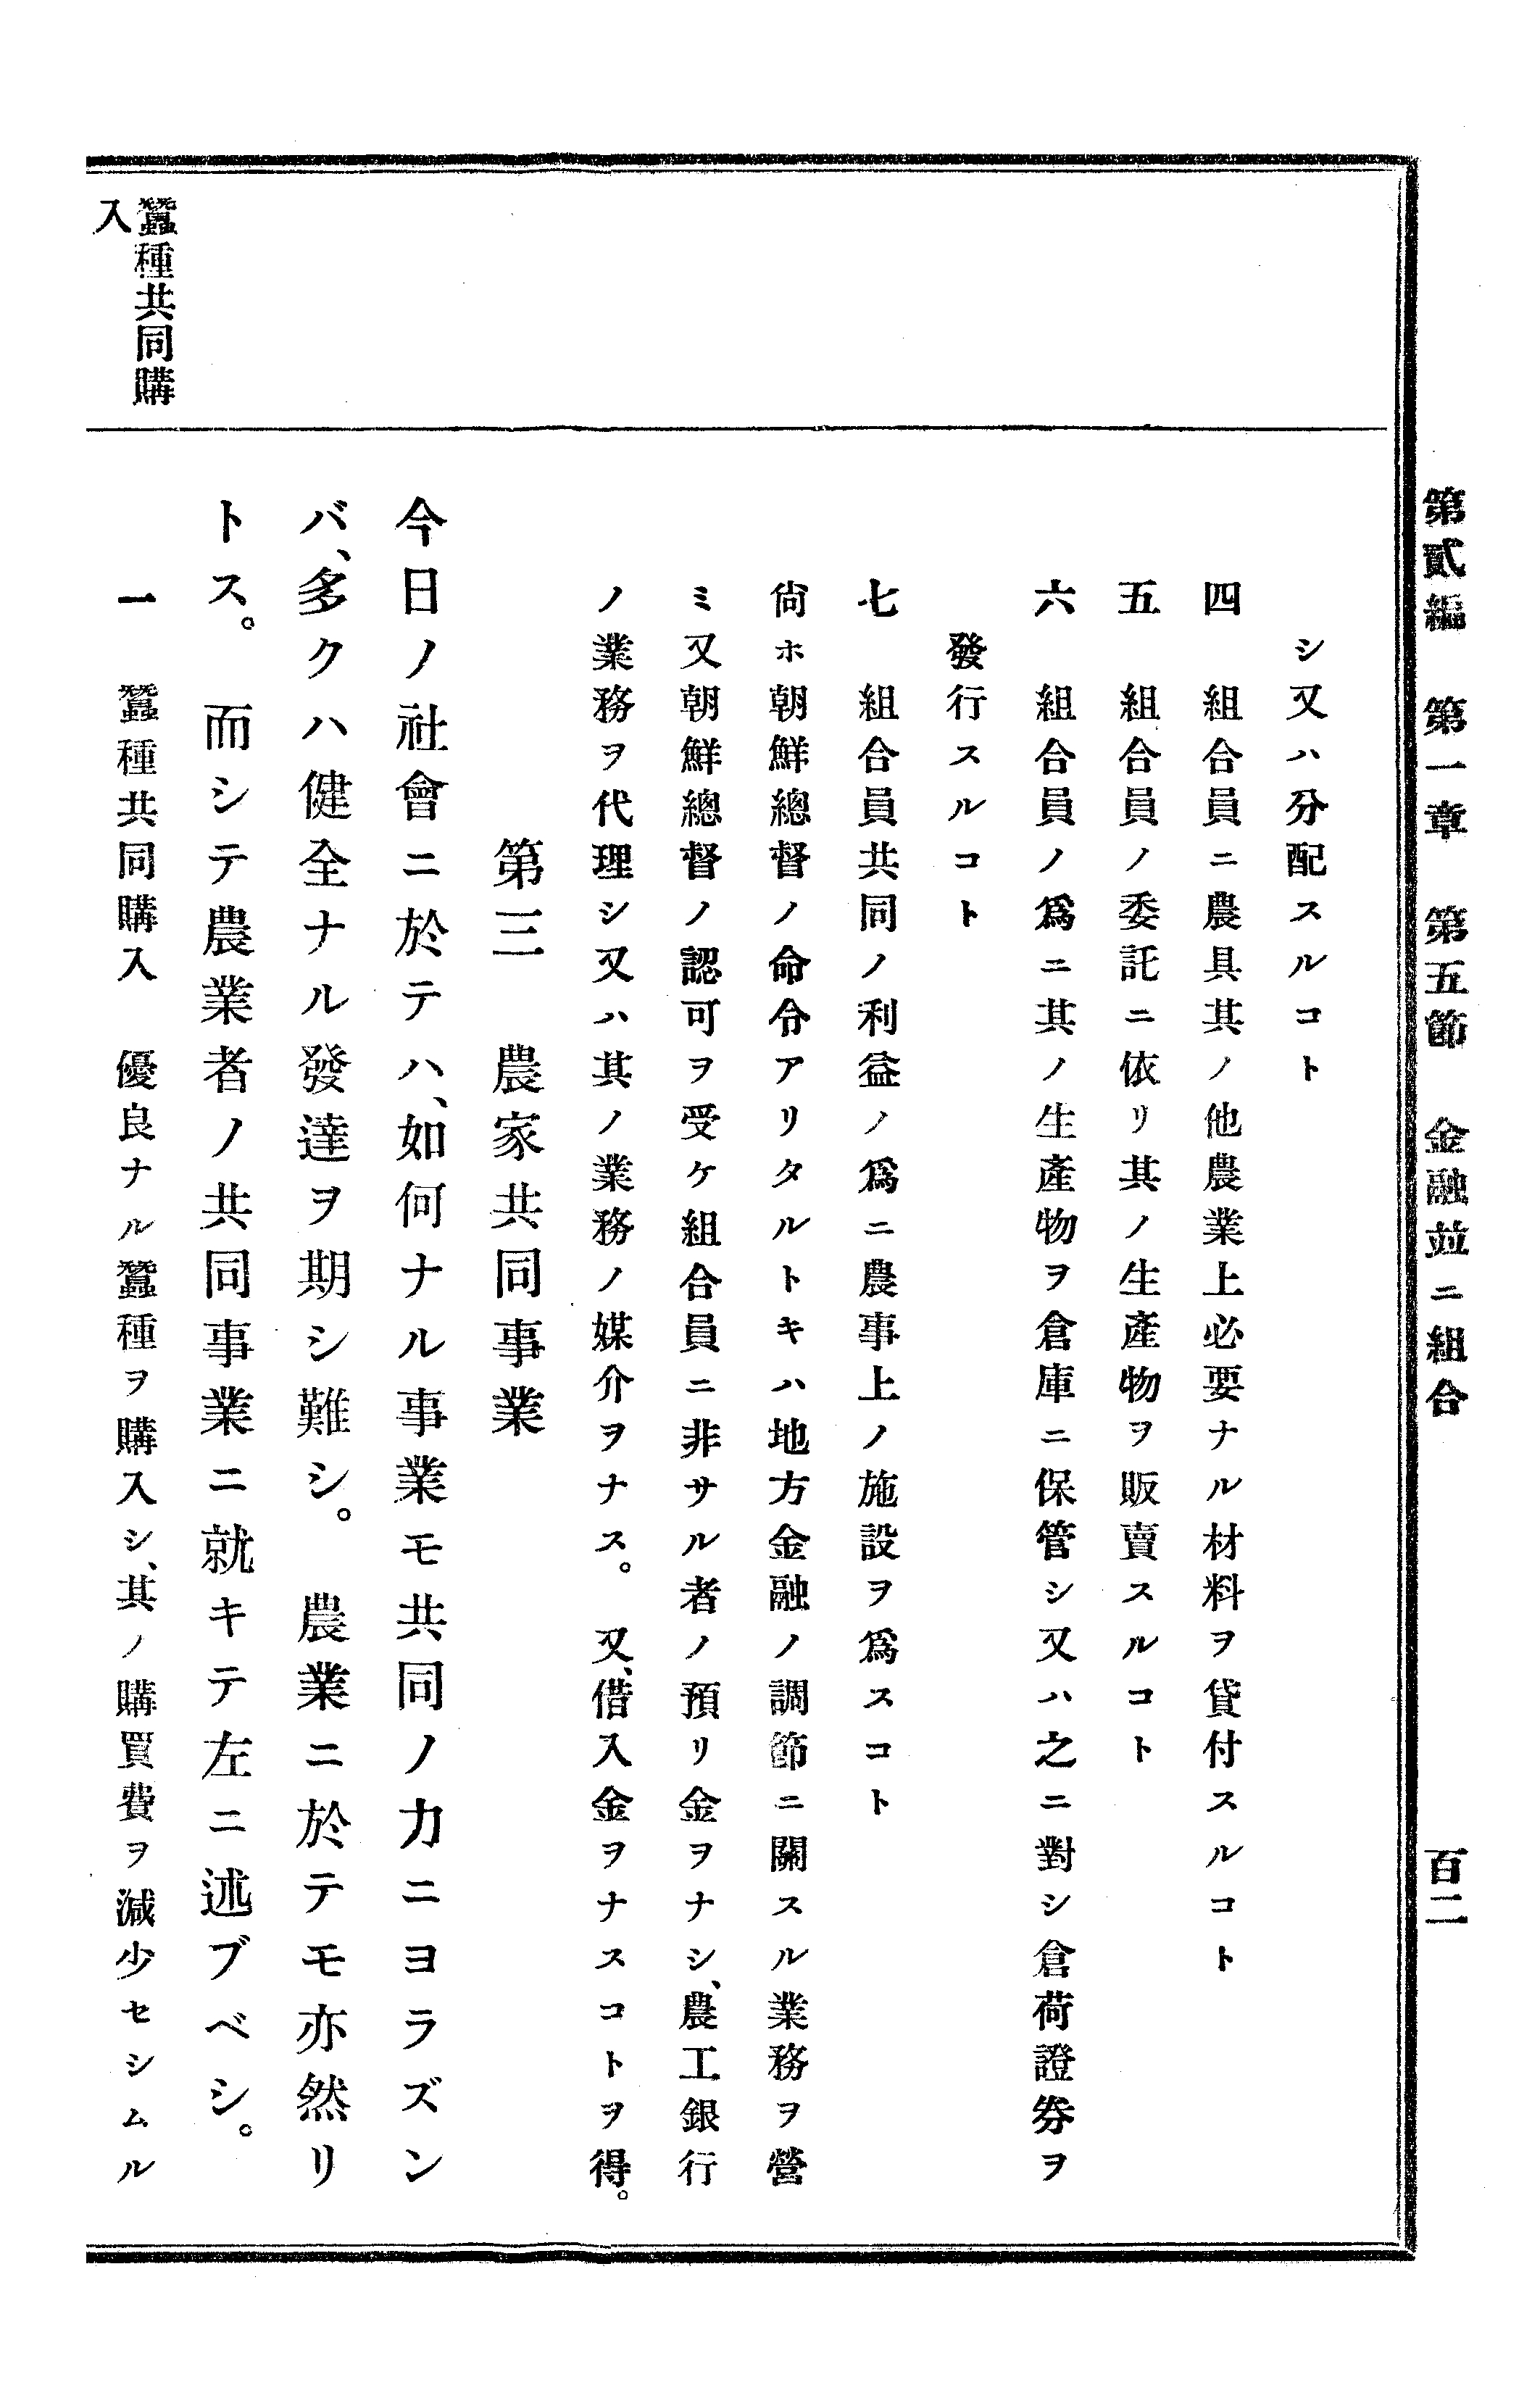 第貳編　第一章　第五節　金融並ニ組合　百二
シ又ハ分配スルコト
四　組合員ニ農具其ノ他農業上必要ナル材料ヲ貸付スルコト
五　組合員ノ委託ニ依リ其ノ生產物ヲ販賣スルコト
六　組合員ノ爲ニ其ノ生產物ヲ倉庫ニ保管シ又ハ之ニ對シ倉荷證券ヲ
發行スルコト
七　組合員共同ノ利益ノ爲ニ農事上ノ施設ヲ爲スコト
尙ホ朝鮮總督ノ命令アリタルトキハ地方金融ノ調節ニ關スル業務ヲ營
ミ又朝鮮總督ノ認可ヲ受ケ組合員ニ非サル者ノ預リ金ヲナシ、農工銀行
ノ業務ヲ代理シ又ハ其ノ業務ノ媒介ヲナス。又、借入金ヲナスコトヲ得。
第三　農家共同事業
今日ノ社會ニ於テハ、如何ナル事業モ共同ノ力ニヨラズン
バ、多クハ健全ナル發達ヲ期シ難シ。農業ニ於テモ亦然リ
トス。而シテ農業者ノ共同事業ニ就キテ左ニ述ブベシ。
蠶種共同購
入
一　蠶種共同購入　優良ナル蠶種ヲ購入シ、其ノ購買費ヲ減少セシムル